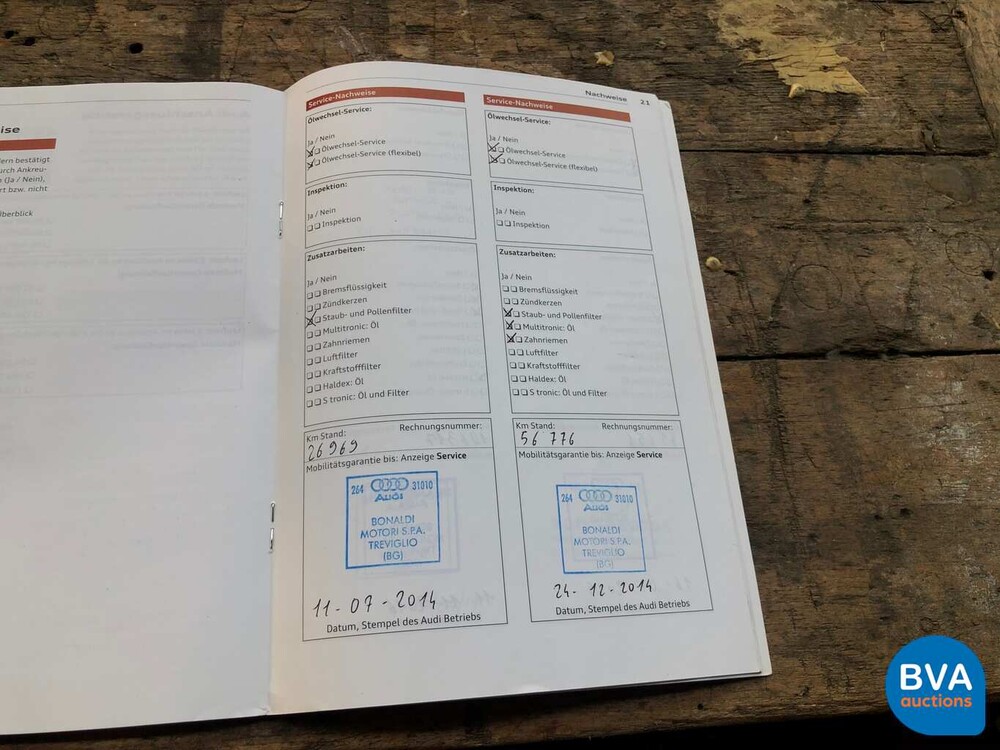 ise
fern bestätigt
urch Ankreu-
n (Ja / Nein),
rt bzw. nicht
berblick
Nachweise 21
Service-Nachweise
Ölwechsel-Service:
Ja / Nein
Ölwechsel-Service
Ölwechsel-Service (flexibel)
Inspektion:
Ja / Nein
Inspektion
Zusatzarbeiten:
Ja / Nein
Bremsflüssigkeit
Zündkerzen
Staub- und Pollenfilter
Multitronic: Öl
Zahnriemen
Luftfilter
Kraftstofffilter
Haldex: Öl
S tronic: Öl und Filter
Rechnungsnummer:
Km Stand:
26 969
Mobilitätsgarantie bis: Anzeige Service
264 31010
Audi
BONALDI
MOTORI S.P.A.
TREVIGLIO
(BG)
11-07-2014
Datum, Stempel des Audi Betriebs
Service-Nachweise
Ölwechsel-Service:
Ja / Nein
Ölwechsel-Service
Ölwechsel-Service (flexibel)
Inspektion:
Ja / Nein
Inspektion
Zusatzarbeiten:
Ja / Nein
Bremsflüssigkeit
Zündkerzen
Staub- und Pollenfilter
Multitronic: Öl
Zahnriemen
Luftfilter
Kraftstofffilter
Haldex: Öl
S tronic: Öl und Filter
Km Stand: Rechnungsnummer:
56 776
Mobilitätsgarantie bis: Anzeige Service
264 31010
Audi
BONALDI
MOTORI S.P.A.
TREVIGLIO
(BG)
24-12-2014
Datum, Stempel des Audi Betriebs
BVA
auctions